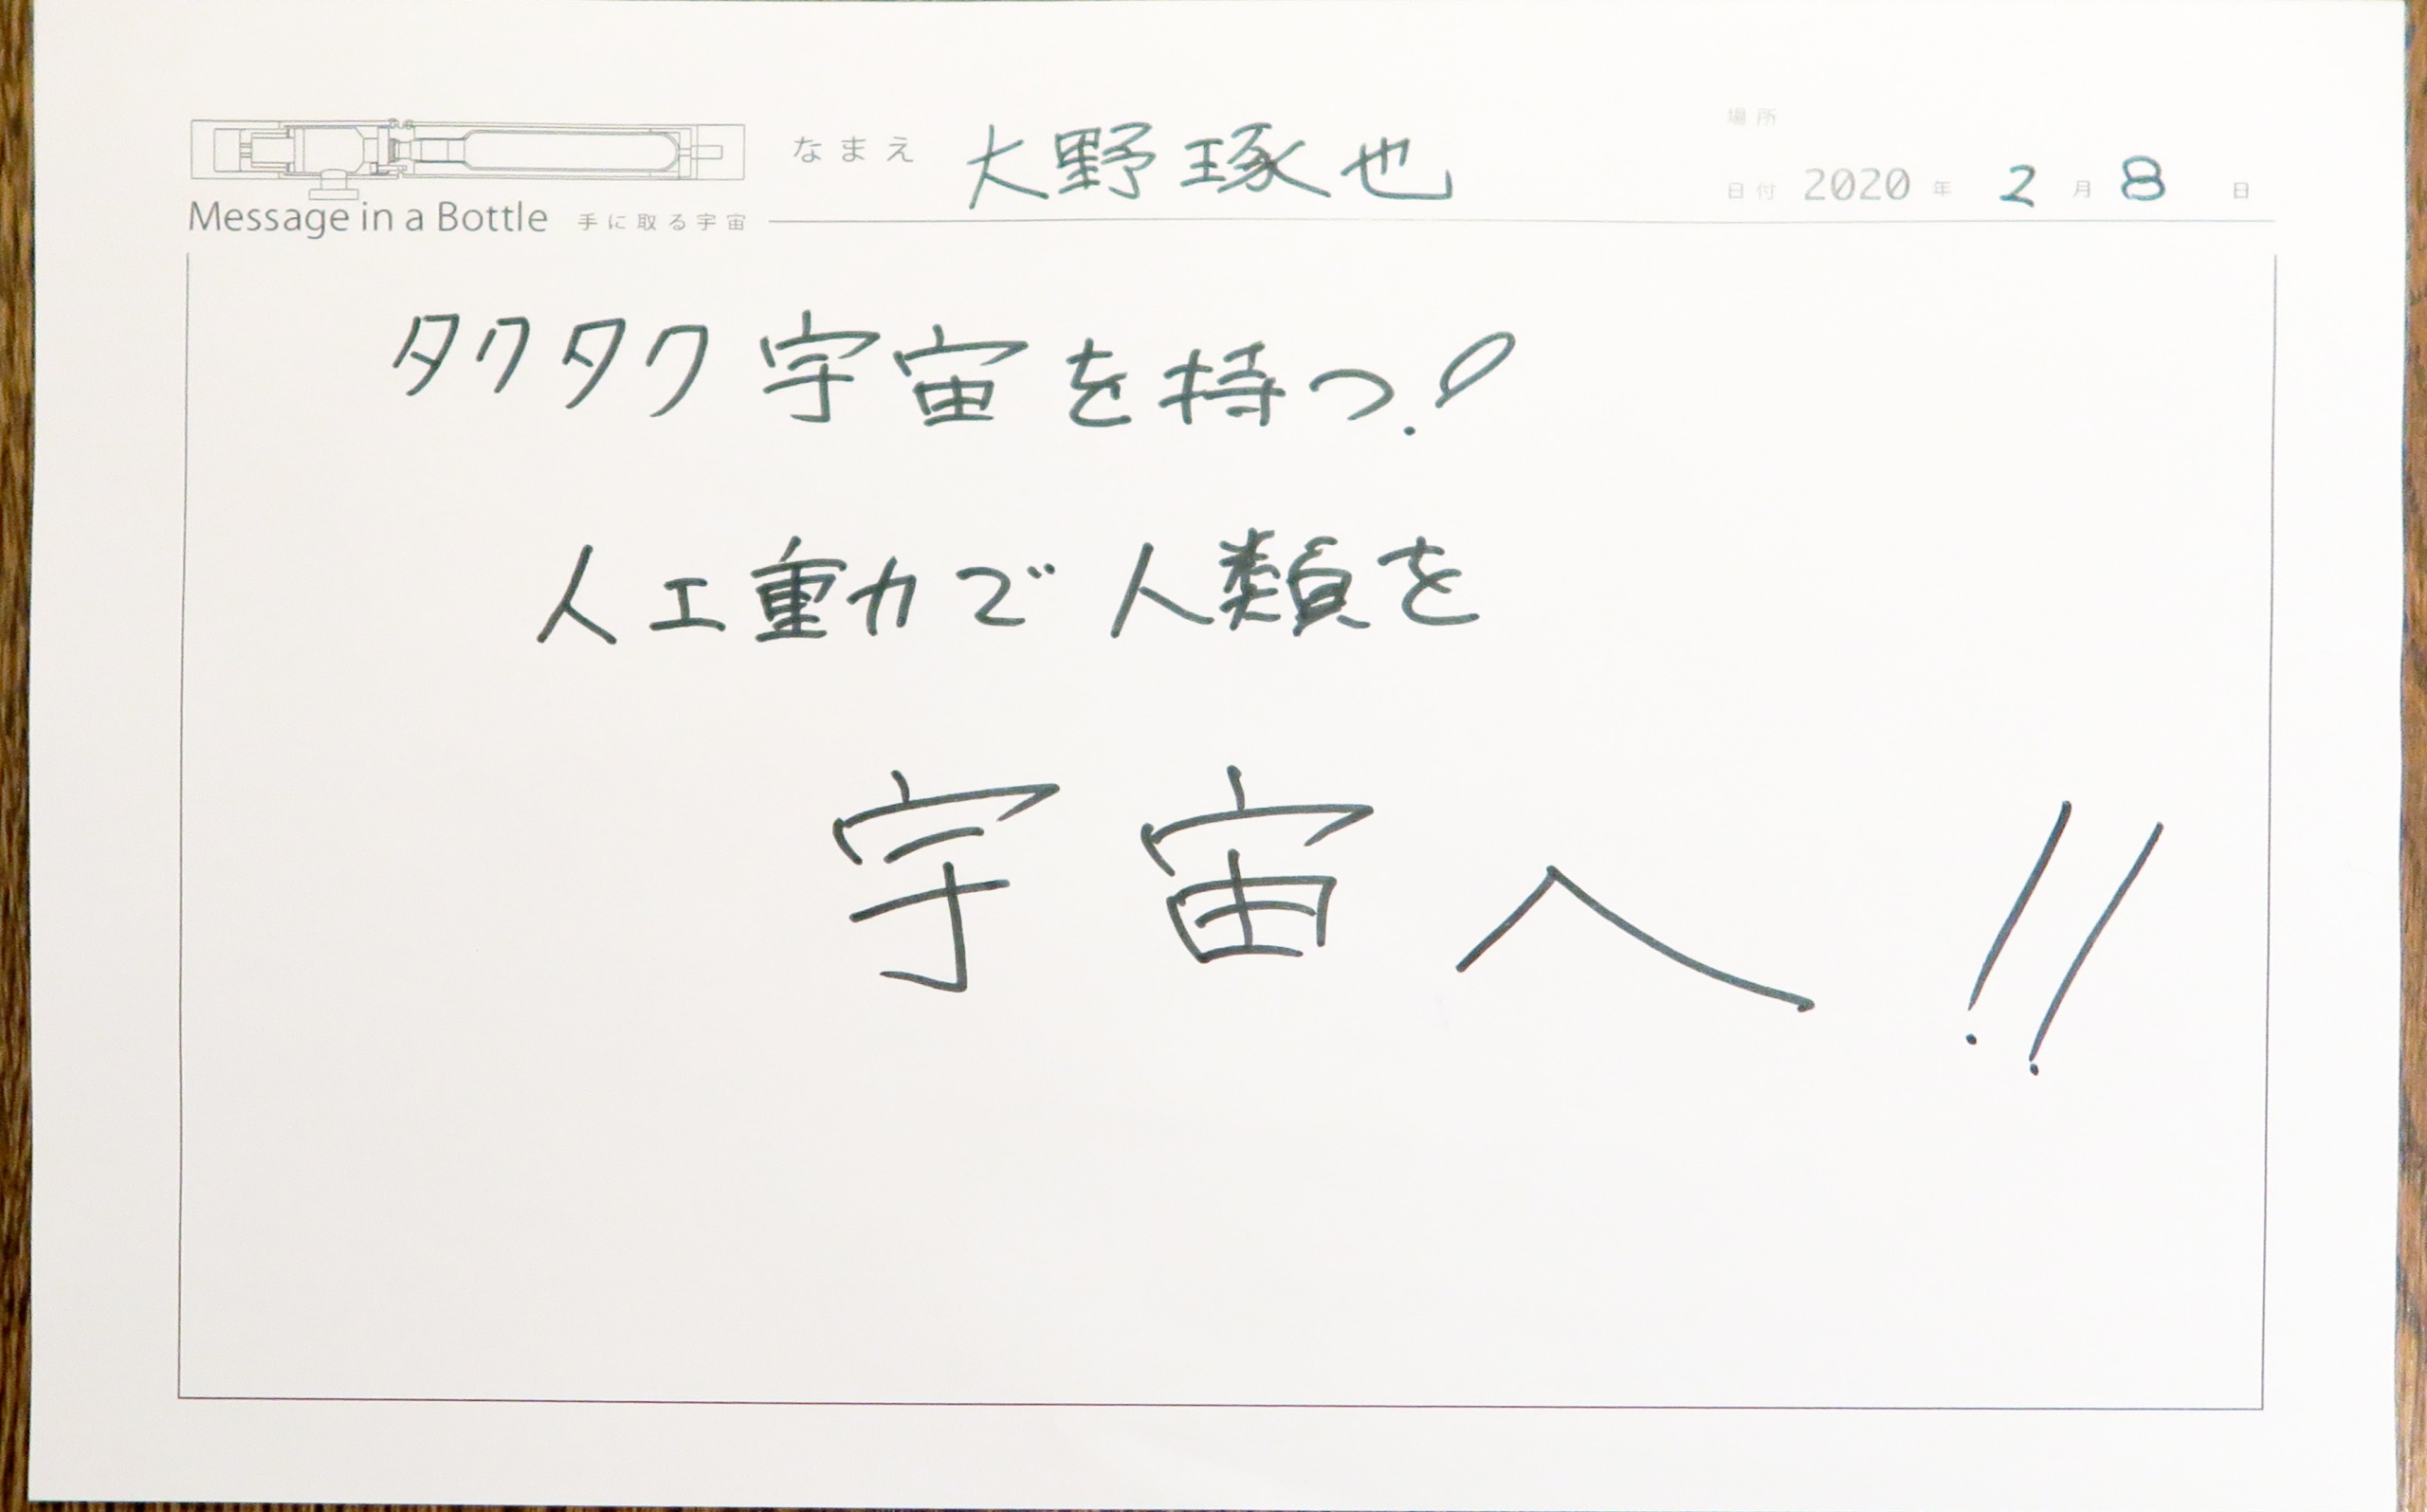 なまえ 大野琢也
場所
日付 2020 年 2 月 8 日
Message in a Bottle 手に取る宇宙
タクタク宇宙を持つ!
人工重力で人類を
宇宙へ!!